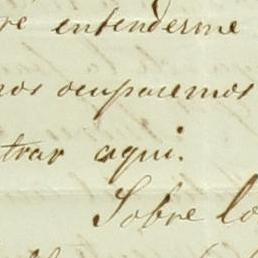 re entenderme
nos ocuparemos
trar aqui.
Sobre lo